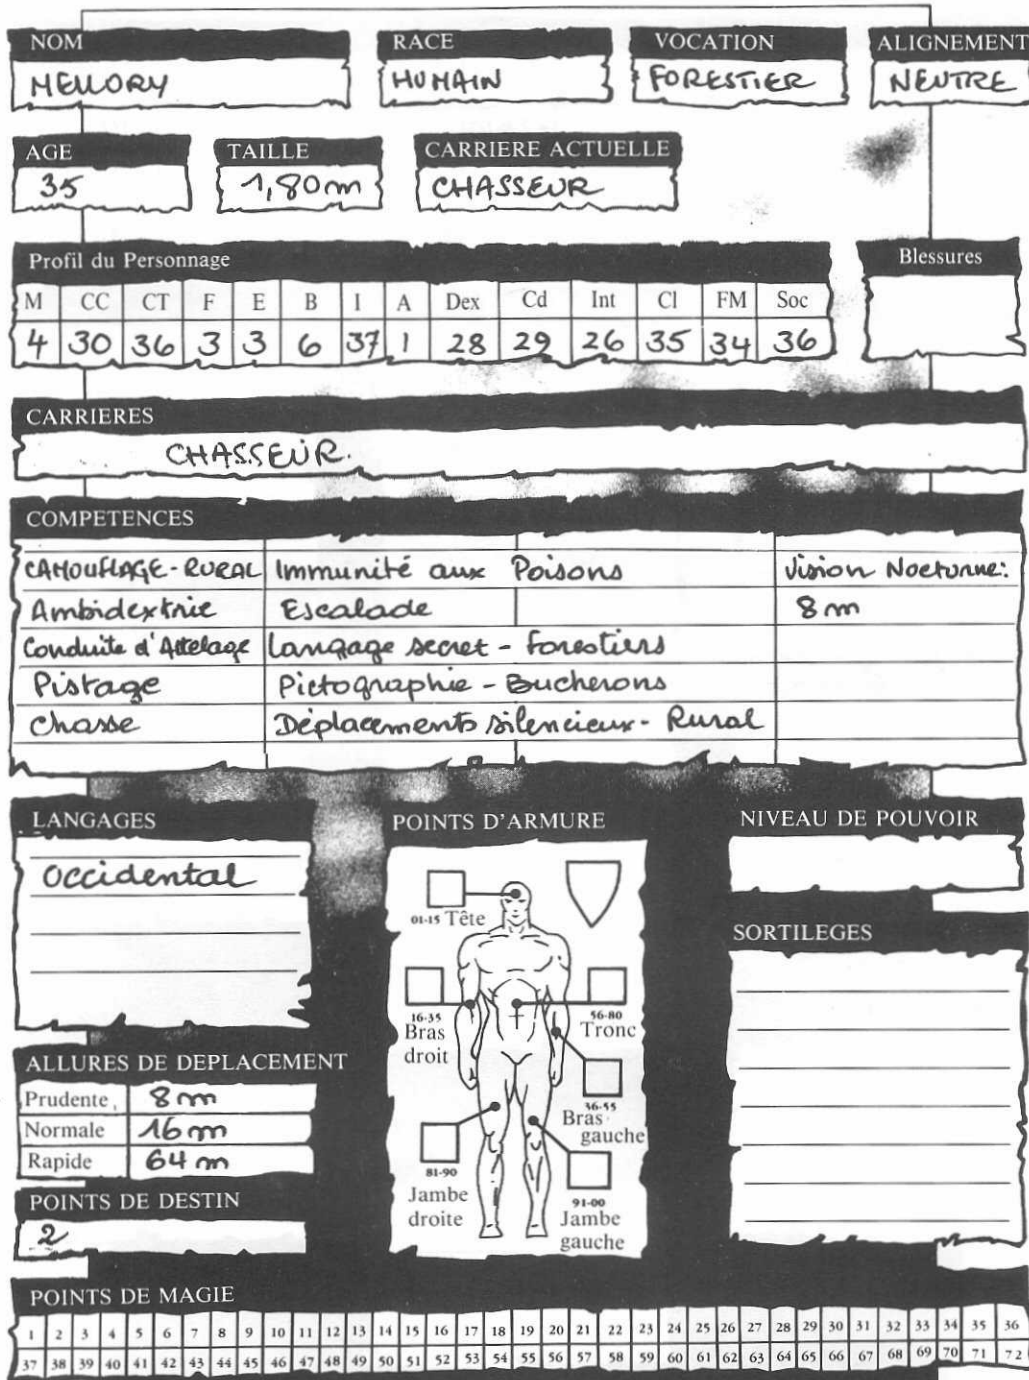 NOM RACE VOCATION ALIGNEMENT
MELLORY HUMAIN FORESTIER NEUTRE
AGE TAILLE CARRIERE ACTUELLE
35 1,80m CHASSEUR
Profil du Personnage Blessures
M CC CT F E B I A Dex Cd Int Cl FM Soc
4 30 36 3 3 6 37 1 28 29 26 35 34 36
CARRIERES
CHASSEUR.
COMPETENCES
CAMOUFLAGE-RURAL Immunité aux Poisons Vision Nocturne:
Ambidextrie Escalade 8m
Conduite d'Attelage Langage secret - Forestiers
Pistage Pictographie - Bucherons
Chasse Déplacements silencieux - Rural
LANGAGES POINTS D'ARMURE NIVEAU DE POUVOIR
Occidental
01-15 Tête
SORTILEGES
16-35 Bras droit
56-80 Tronc
36-55 Bras gauche
81-90 Jambe droite
91-00 Jambe gauche
ALLURES DE DEPLACEMENT
Prudente 8m
Normale 16m
Rapide 64m
POINTS DE DESTIN
2
POINTS DE MAGIE
1 2 3 4 5 6 7 8 9 10 11 12 13 14 15 16 17 18 19 20 21 22 23 24 25 26 27 28 29 30 31 32 33 34 35 36
37 38 39 40 41 42 43 44 45 46 47 48 49 50 51 52 53 54 55 56 57 58 59 60 61 62 63 64 65 66 67 68 69 70 71 72